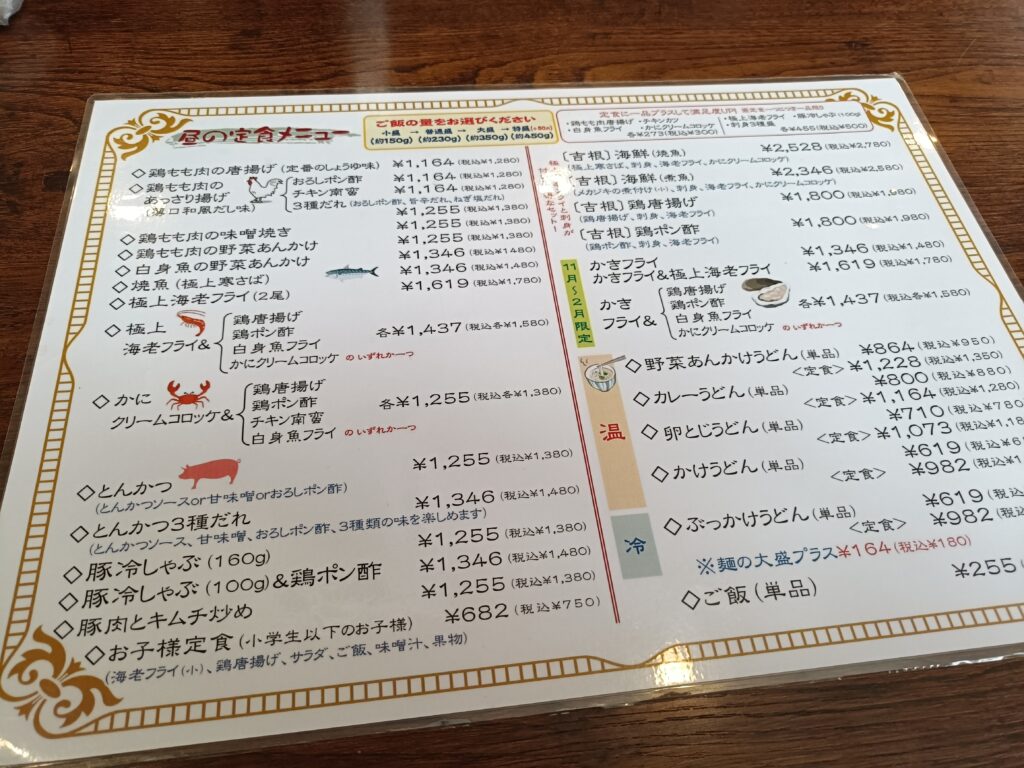 昼の定食メニュー
ご飯の量をお選びください
小盛 → 普通盛 → 大盛 → 特盛(+80円)
(約150g) (約230g) (約350g) (約450g)
◇鶏もも肉の唐揚げ (定番のしょうゆ味) ¥1,164(税込¥1,280)
◇鶏もも肉の
あっさり揚げ
おろしポン酢 ¥1,164(税込¥1,280)
チキン南蛮 ¥1,164(税込¥1,280)
3種だれ(おろしポン酢、旨辛だれ、ねぎ塩だれ) ¥1,255(税込¥1,380)
◇鶏もも肉の味噌焼き ¥1,255(税込¥1,380)
◇鶏もも肉の野菜あんかけ ¥1,255(税込¥1,380)
◇白身魚の野菜あんかけ ¥1,346(税込¥1480)
◇焼魚(極上寒さば) ¥1,346(税込¥1,480)
◇極上海老フライ(2尾) ¥1,619(税込¥1,780)
◇極上
海老フライ&
鶏唐揚げ
鶏ポン酢
白身魚フライ
かにクリームコロッケ のいずれか一つ
各¥1,437(税込各¥1,580)
◇かに
クリームコロッケ&
鶏唐揚げ
鶏ポン酢
チキン南蛮
白身魚フライ のいずれか一つ
各¥1,255(税込各¥1,380)
◇とんかつ ¥1,255(税込¥1,380)
(とんかつソースor甘味噌orおろしポン酢)
◇とんかつ3種だれ ¥1,346(税込¥1,480)
(とんかつソース、甘味噌、おろしポン酢、3種類の味を楽しめます)
◇豚冷しゃぶ(160g) ¥1,255(税込¥1,380)
◇豚冷しゃぶ(100g)&鶏ポン酢 ¥1,346(税込¥1,480)
◇豚肉とキムチ炒め ¥1,255(税込¥1,380)
◇お子様定食(小学生以下のお子様) ¥682(税込¥750)
(海老フライ(小)、鶏唐揚げ、サラダ、ご飯、味噌汁、果物)
定食に一品プラスして満足度UP!
・鶏もも肉唐揚げ ・チキンカツ
・白身魚フライ ・かにクリームコロッケ
各¥273(税込¥300)
・極上海老フライ ・豚冷しゃぶ(100g)
・刺身3種盛
各¥455(税込¥500)
[吉根]海鮮(焼魚) ¥2,528(税込¥2,780)
(極上寒さば、刺身、海老フライ、かにクリームコロッケ)
[吉根]海鮮(煮魚) ¥2,346(税込¥2,580)
(メカジキの煮付け(小)、刺身、海老フライ、かにクリームコロッケ)
[吉根]鶏唐揚げ ¥1,800
(鶏唐揚げ、刺身、海老フライ)
[吉根]鶏ポン酢 ¥1,800(税込¥1,980)
(鶏ポン酢、刺身、海老フライ)
11月~2月限定
かきフライ ¥1,346(税込¥1,480)
かきフライ&極上海老フライ ¥1,619(税込¥1,780)
かき
フライ&
鶏唐揚げ
鶏ポン酢
白身魚フライ
かにクリームコロッケ のいずれか一つ
各¥1,437(税込¥1,580)
温
◇野菜あんかけうどん(単品) ¥864(税込¥950)
<定食>¥1,228(税込¥1,350)
◇カレーうどん(単品) ¥800(税込¥880)
<定食>¥1,164(税込¥1,280)
◇卵とじうどん(単品) ¥710(税込¥780
<定食>¥1,073(税込¥1,18
◇かけうどん(単品) ¥619(税込¥6
<定食> ¥982(税込¥1
冷
◇ぶっかけうどん(単品) ¥619(税込¥
<定食> ¥982(税込
※麺の大盛プラス¥164(税込¥180)
◇ご飯(単品) ¥255